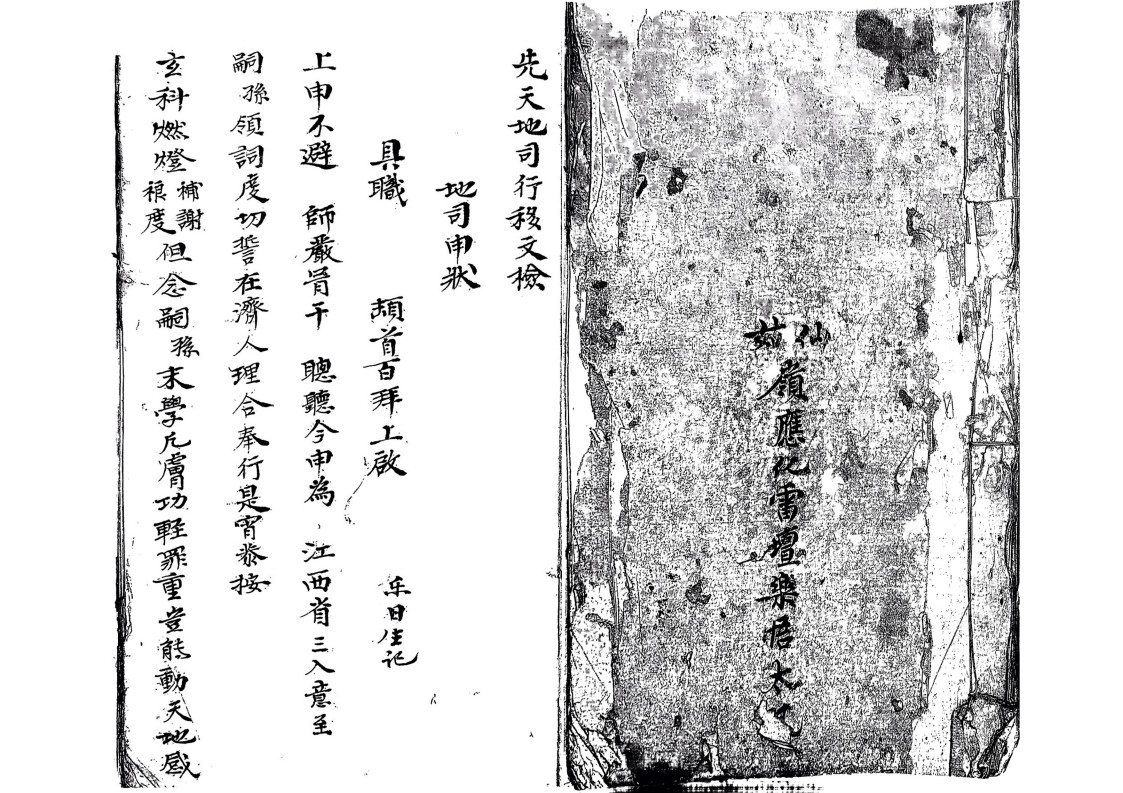 仙茲
嶺應化雷壇樂悟太
先天地司行移文檢
地司申狀
具職 頓首百拜上啟
上申不避 師嚴冒干 聰聽今申為 江西省三入意至
嗣孫領詞虔切誓在濟人理合奉行是宵恭按
玄科燃燈補謝禳度但念嗣孫末學凡膚功輕罪重豈能動天地感